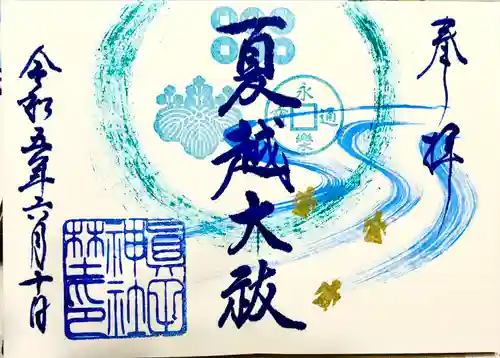 奉拝
夏越大祓
永樂通寳
令和五年六月十日
眞田
神社